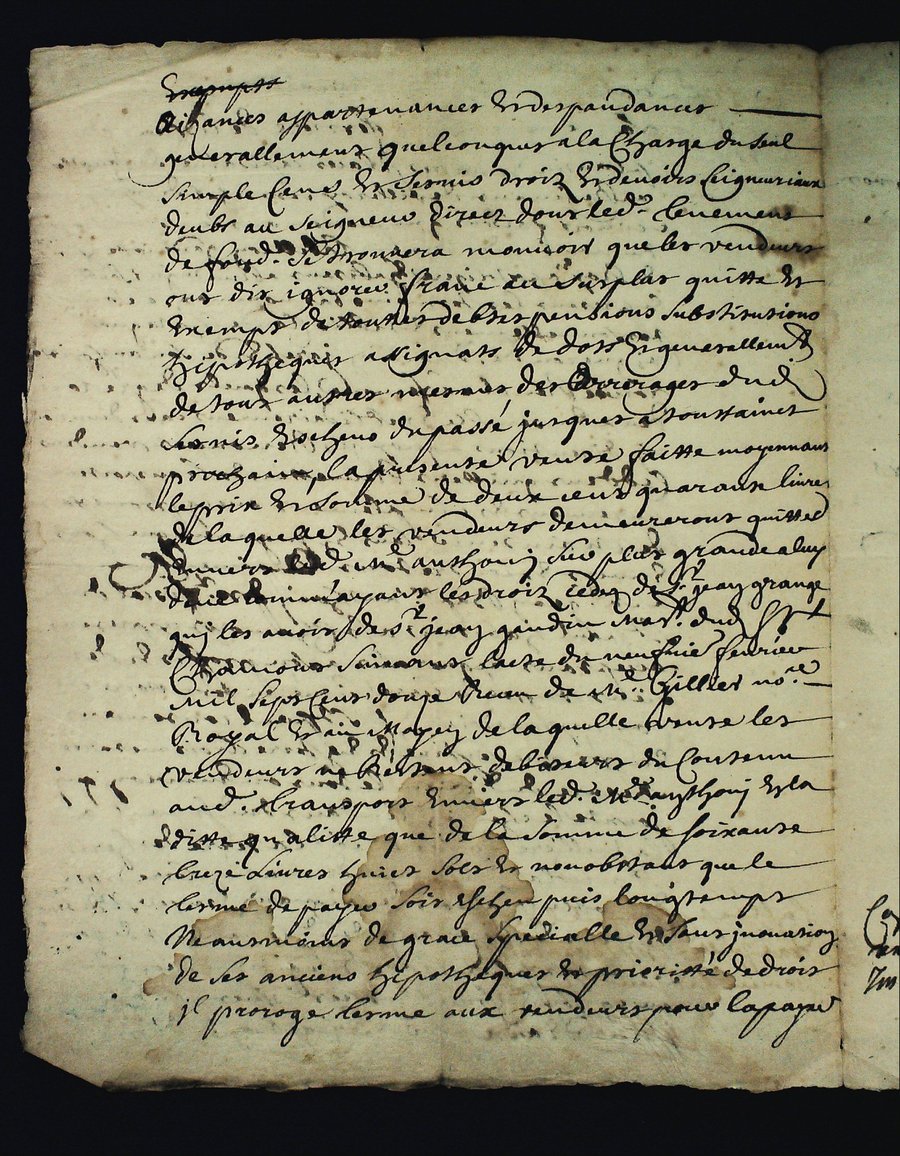 Aizances appartenances et despandances
generallement quelconques a la Charge du seul
simple Cens et servis droit et devoirs seigneuriaux
deubs au seigneur direct dont led. tenement
de fond. se trouvera mouvoir que les vendeurs
ont dit ignorer franc au surplus quitte et
exempt de touttes debtes pensions substitutions
hipotheques assignats de dots et generallemt
de tout autres mesmes des arrerages dud
servis escheus du passé jusques a touttainct
prochain, la presente vente faitte moyennant
le prix et somme de deux cent quarante livres
de laquelle les vendeurs demeureront quittes
envers led. Me anthoinj sur plus grande a luy
deue comme ayant les droit cedes de sr jean grange
quj les avoit de sr jean gaudin Mart. dud St
Chaumont suivant lacte du neufvie fevrier
Mil sept Cent douze Receu de Me Gillier nore
Royal et ain Mayen de laquelle vente les
vendeurs ne Restent debiteurs du Contenu
aud. transport envers led. Me anthonj en la
ditte qualitte que de la somme de soixante
treize Livres huict sols et nonobstant que le
terme de payer soit escheu puis longtemps
Neantmoins de grace specialle et sans jnovation
de ses anciens hipotheques et prioritté de droit
jl proroge terme aux vendeurs pour la payer